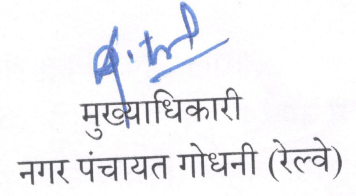 मुख्याधिकारी
नगर पंचायत गोधनी (रेल्वे)